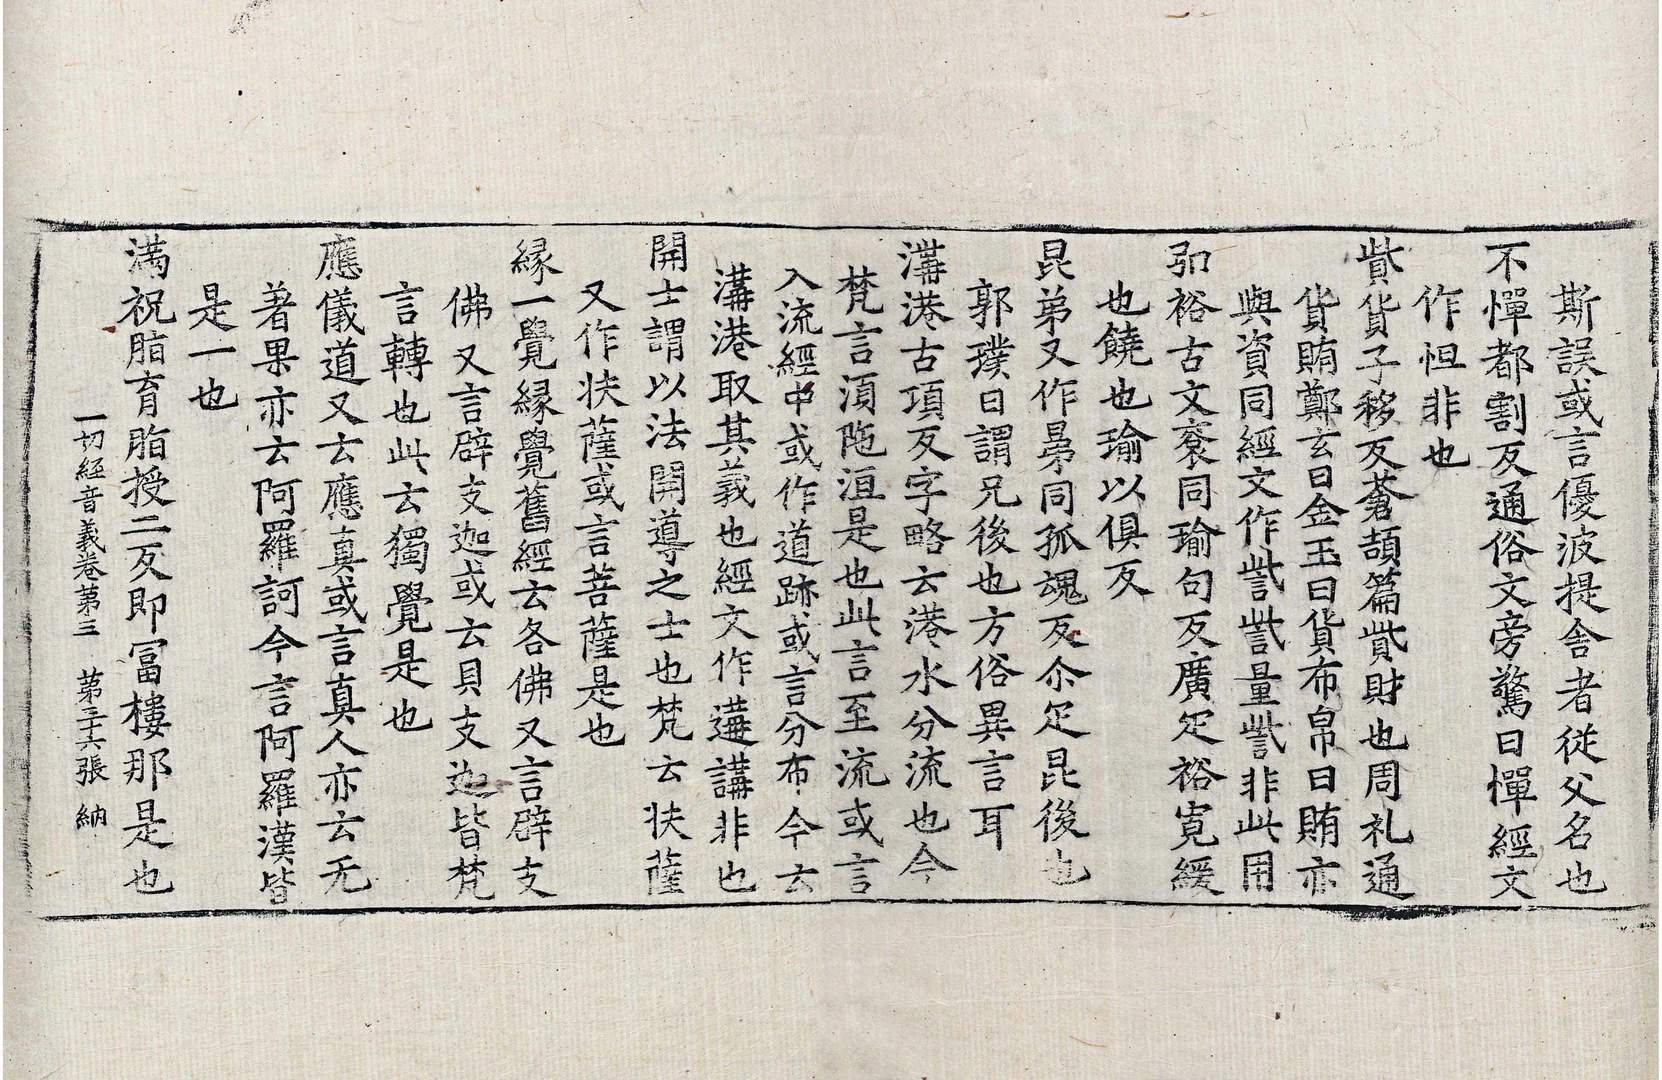 斯誤或言優波提舍者従父名也
不憚都割反通俗文旁驚曰憚經文
作怛非也
貲貨子移反蒼頡篇貲財也周礼通
貨賄鄭玄曰金玉曰貨布帛曰賄亦
與資同經文作訾訾量訾非此用
弘裕古文袬同瑜句反廣疋裕寛緩
也饒也瑜以俱反
昆弟又作晜同孤魂反尒疋昆後也
郭璞曰謂兄後也方俗異言耳
溝港古項反字略云港水分流也今
梵言湏陁洹是也此言至流或言
入流經中或作道跡或言分布今云
溝港取其義也經文作遘講非也
開士謂以法開導之士也梵云扶薩
又作扶薩或言菩薩是也
縁一覺縁覺舊經云各佛又言辟支
佛又言辟支迦或云貝支迦皆梵
言轉也此云獨覺是也
應儀道又云應真或言真人亦云无
著果亦云阿羅訶今言阿羅漢皆
是一也
満祝脂育脂授二反即冨樓那是也
一切經音義卷第三　第三十六張　納